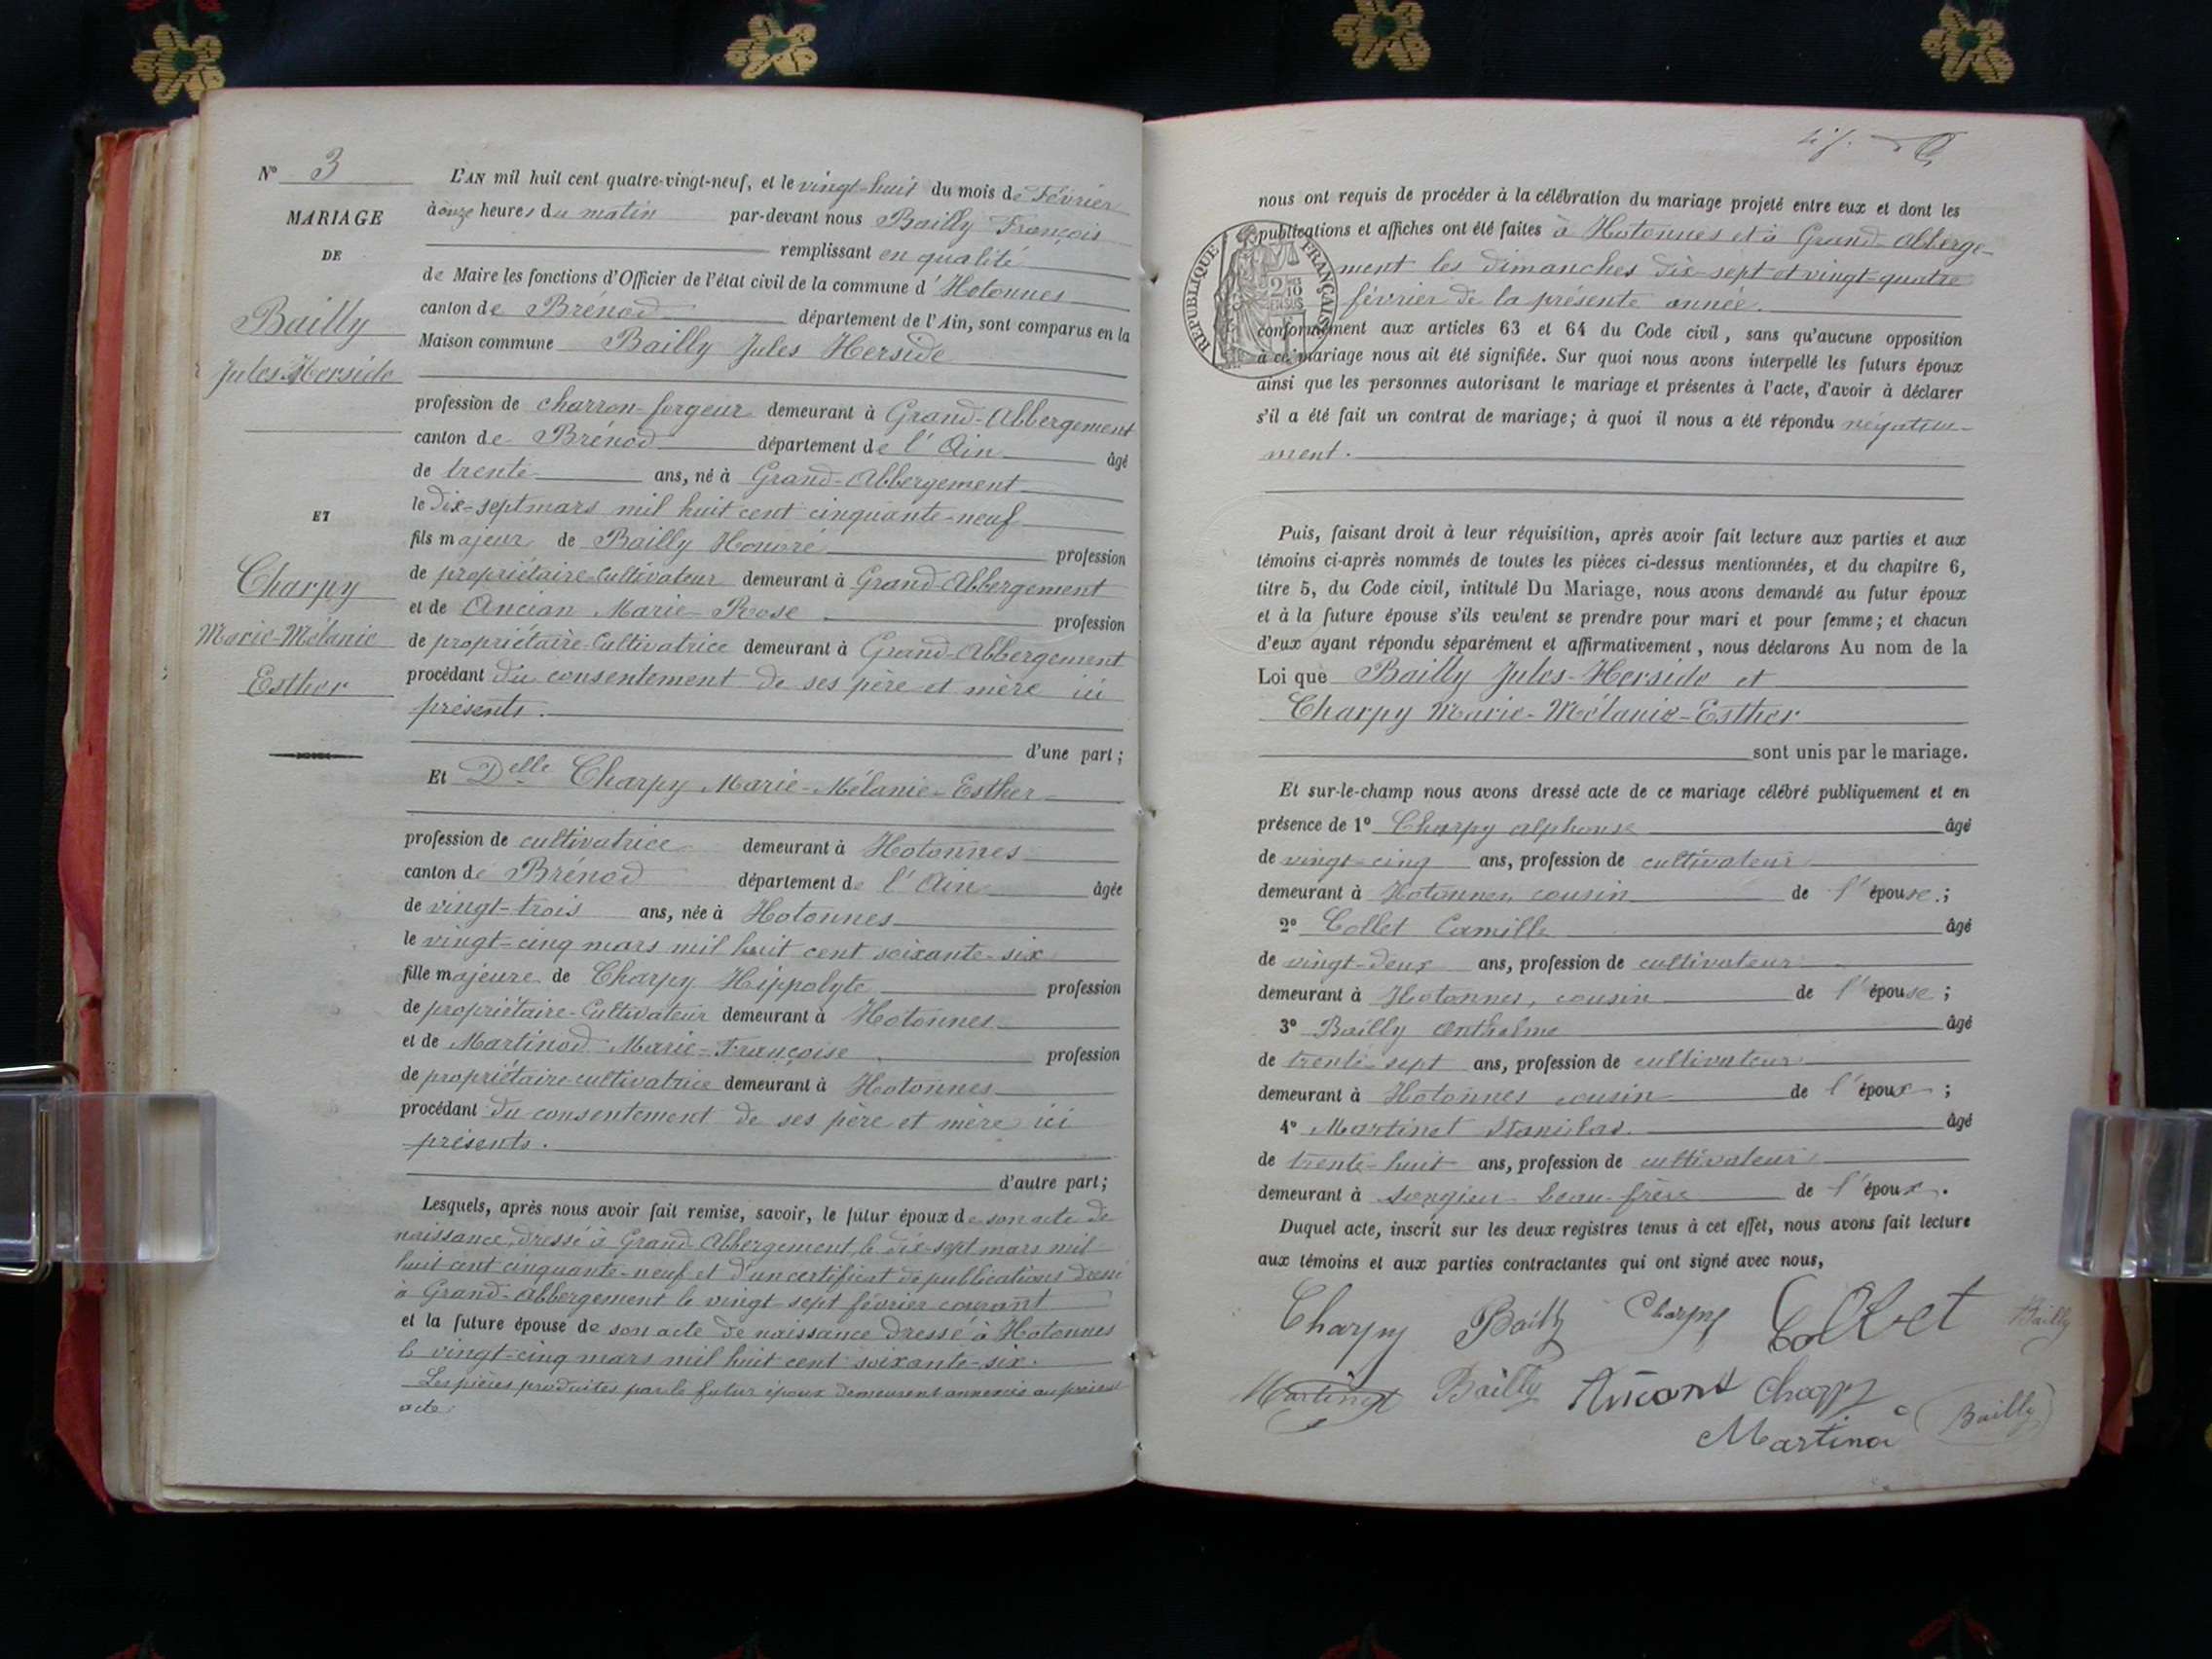 N° 3
MARIAGE
DE
Bailly
Jules-Herside
ET
Charpy
Marie-Mélanie
Esther
L'AN mil huit cent quatre-vingt-neuf, et le vingt-huit du mois de Février
à onze heures du matin par-devant nous Bailly François
remplissant en qualité
de Maire les fonctions d'Officier de l'état civil de la commune d'Hotonnes
canton de Brénod département de l'Ain, sont comparus en la
Maison commune Bailly Jules Herside
profession de charron-forgeur demeurant à Grand-Abbergement
canton de Brénod département de l'Ain âgé
de trente ans, né à Grand-Abbergement
le dix-sept mars mil huit cent cinquante-neuf
fils majeur de Bailly Honoré profession
de propriétaire-cultivateur demeurant à Grand-Abbergement
et de Ancian Marie-Rose profession
de propriétaire-Cultivatrice demeurant à Grand-Abbergement
procédant du consentement de ses père et mère ici
présents.
d'une part;
Et Delle Charpy Marie-Mélanie-Esther
profession de cultivatrice demeurant à Hotonnes
canton de Brénod département de l'Ain âgée
de vingt-trois ans, née à Hotonnes
le vingt-cinq mars mil huit cent soixante-six
fille majeure de Charpy Hippolyte profession
de propriétaire-Cultivateur demeurant à Hotonnes
et de Martinod Marie-Françoise profession
de propriétaire-cultivatrice demeurant à Hotonnes
procédant du consentement de ses père et mère ici
présents.
d'autre part;
Lesquels, après nous avoir fait remise, savoir, le futur époux de son acte de
naissance, dressé à Grand-Abbergement, le dix-sept mars mil
huit cent cinquante-neuf et d'un certificat de publications dressé
à Grand-Abbergement le vingt-sept février courant
et la future épouse de son acte de naissance dressé à Hotonnes
le vingt-cinq mars mil huit cent soixante-six.
Les pièces produites par le futur époux demeurent annexées au présent
acte.
nous ont requis de procéder à la célébration du mariage projeté entre eux et dont les
publications et affiches ont été faites à Hotonnes et à Grand-Abberge-
ment les dimanches dix-sept et vingt-quatre
février de la présente année.
RÉPUBLIQUE FRANÇAISE
2/10 EN SUS
conformément aux articles 63 et 64 du Code civil, sans qu'aucune opposition
à ce mariage nous ait été signifiée. Sur quoi nous avons interpellé les futurs époux
ainsi que les personnes autorisant le mariage et présentes à l'acte, d'avoir à déclarer
s'il a été fait un contrat de mariage; à quoi il nous a été répondu négative-
ment.
Puis, faisant droit à leur réquisition, après avoir fait lecture aux parties et aux
témoins ci-après nommés de toutes les pièces ci-dessus mentionnées, et du chapitre 6,
titre 5, du Code civil, intitulé Du Mariage, nous avons demandé au futur époux
et à la future épouse s'ils veulent se prendre pour mari et pour femme; et chacun
d'eux ayant répondu séparément et affirmativement, nous déclarons Au nom de la
Loi que Bailly Jules-Herside et
Charpy Marie-Mélanie-Esther
sont unis par le mariage.
Et sur-le-champ nous avons dressé acte de ce mariage célébré publiquement et en
présence de 1° Charpy alphonse âgé
de vingt-cinq ans, profession de cultivateur
demeurant à Hotonnes, cousin de l'épouse;
2° Collet Camille âgé
de vingt-deux ans, profession de cultivateur
demeurant à Hotonnes, cousin de l'épouse;
3° Bailly Anthelme âgé
de trente-sept ans, profession de cultivateur
demeurant à Hotonnes cousin de l'époux;
4° Martinet Stanislas âgé
de trente-huit ans, profession de cultivateur
demeurant à Songieu beau-frère de l'époux.
Duquel acte, inscrit sur les deux registres tenus à cet effet, nous avons fait lecture
aux témoins et aux parties contractantes qui ont signé avec nous,
Charpy Bailly Charpy Collet Bailly
Martinet Bailly Charpy
Bailly